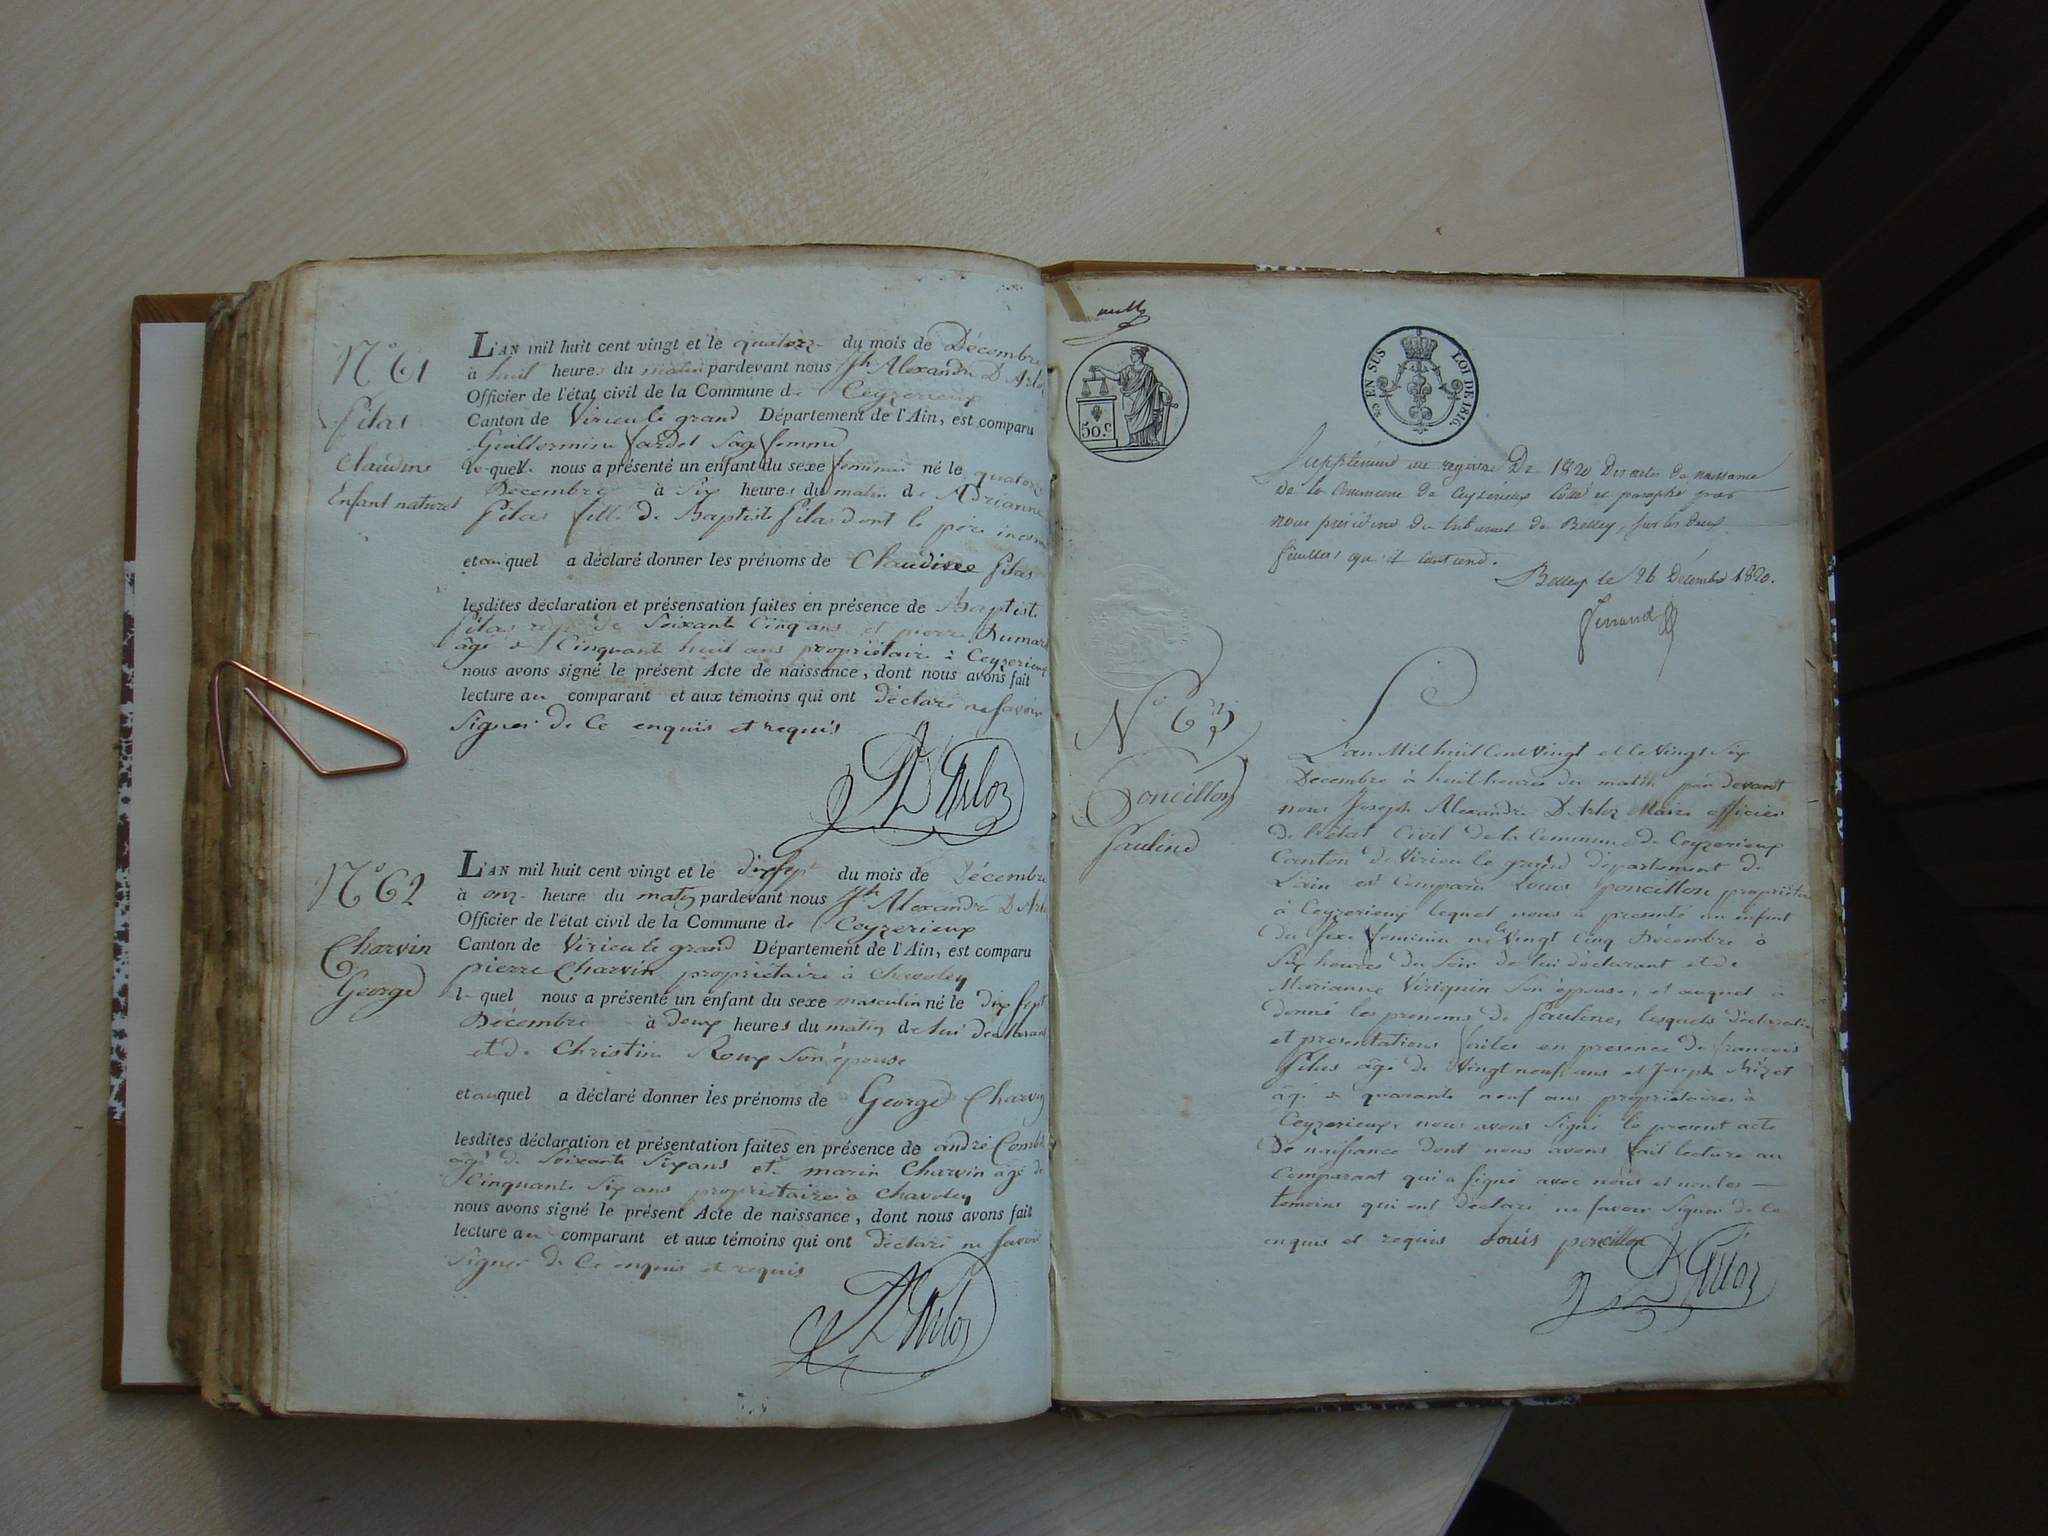 N° 61
Pilas
Claudine
Enfant naturel
L'AN mil huit cent vingt et le quatorze du mois de Décembre
à huit heures du matin pardevant nous Jh Alexandre D'Arloz
Officier de l'état civil de la Commune de Ceyzerieux
Canton de Virieu le grand Département de l'Ain, est comparu
Guillermine Jardet Sage femme
laquelle nous a présenté un enfant du sexe feminin né le quatorze
Décembre à Six heures du matin de Marianne
Pilas fille de Baptiste Pilas dont le père inconnu
et auquel a déclaré donner les prénoms de Claudine Pilas
lesdites déclaration et présensation faites en présence de Baptiste
Pilas âgé de Soixante Cinq ans et pierre Dumas
âgé de Cinquante huit ans propriétaire à Ceyzerieux
nous avons signé le présent Acte de naissance, dont nous avons fait
lecture au comparant et aux témoins qui ont déclaré ne savoir
Signer de Ce enquis et requis
D'Arloz
N° 62
Charvin
George
L'AN mil huit cent vingt et le dix sept du mois de Décembre
à onze heure du matin pardevant nous Jh Alexandre D'Arloz
Officier de l'état civil de la Commune de Ceyzerieux
Canton de Virieu le grand Département de l'Ain, est comparu
pierre Charvin propriétaire à Chavoley
lequel nous a présenté un enfant du sexe masculin né le dix sept
Décembre à deux heures du matin de lui déclarant
et de Christine Roux Son épouse
et auquel a déclaré donner les prénoms de George Charvin
lesdites déclaration et présentation faites en présence de andré Combe
âgé de Soixante Six ans et marin Charvin âgé de
Cinquante Six ans propriétaires à Chavoley
nous avons signé le présent Acte de naissance, dont nous avons fait
lecture au comparant et aux témoins qui ont déclaré ne savoir
Signer de Ce enquis et requis
D'Arloz
50.c
EN SUS LOI DE 1816.
Supplément au registre De 1820 Des actes de naissance
De la Commune de Ceyzérieux Côté et paraphé par
nous président du tribunal de Belley, sur les deux
feuilles qu'il contient.
Belley le 26 Décembre 1820.
N° 63
Poncillon
Pauline
L'an Mil huit Cent Vingt et le Vingt Six
Décembre à huit heures du matin par devant
nous Joseph Alexandre D'Arloz Maire officier
de l'état Civil de la Commune de Ceyzerieux
Canton de Virieu le grand département de
L'ain est Comparu Louis poncillon propriétaire
à Ceyzerieux lequel nous a presenté un enfant
Du Sexe feminin né le Vingt Cinq Décembre à
Six heures du Soir de lui déclarant et de
Marianne Viriguin Son épouse, et auquel a
donné les prenoms de Pauline, lesquels déclaration
et presentations faites en presence de françois
Pilas âgé de Vingt neuf ans et Joseph Mizet
âgé de quarante neuf ans propriétaires à
Ceyzerieux, nous avons Signé le present acte
De naissance dont nous avons fait lecture au
Comparant qui a signé avec nous et non les
temoins qui ont déclaré ne savoir Signer de Ce
enquis et requis Louis poncillon
D'Arloz